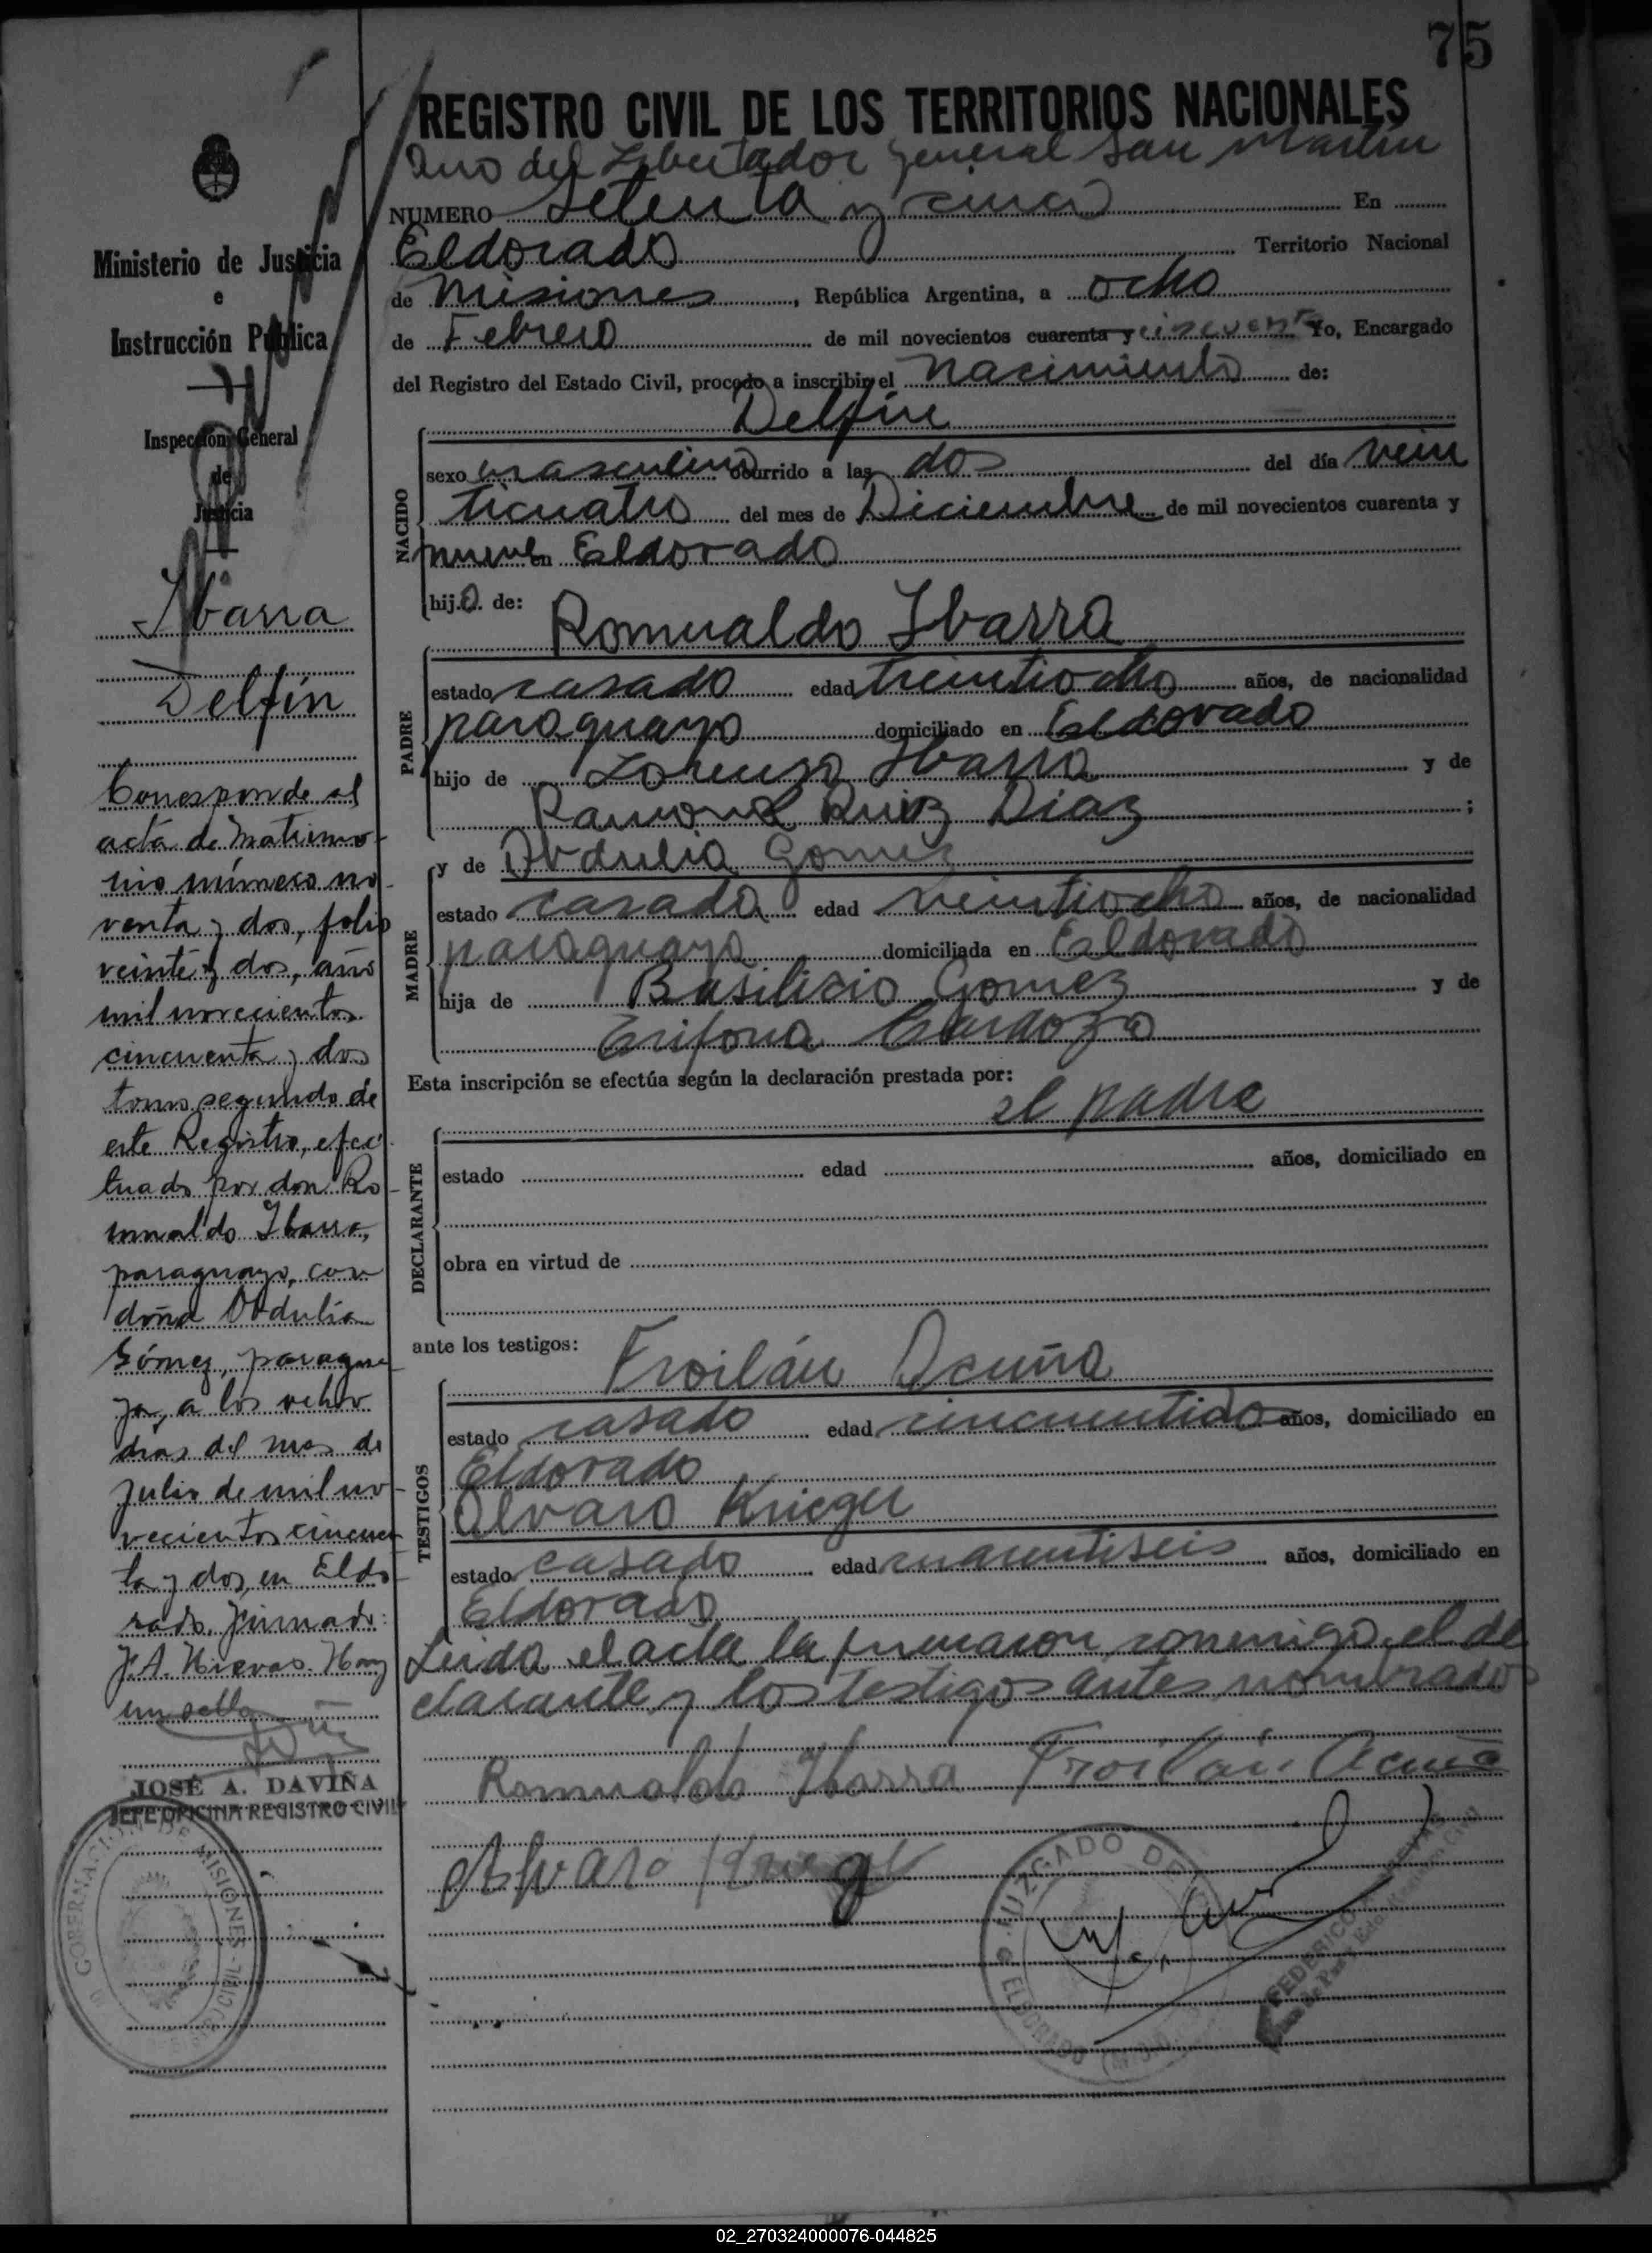 75
REGISTRO CIVIL DE LOS TERRITORIOS NACIONALES
Ano del Libertador General San Martin
NUMERO setenta y cinco En
Eldorado Territorio Nacional
de Misiones, República Argentina, a ocho
de Febrero de mil novecientos cuarenta y cincuenta Yo, Encargado
del Registro del Estado Civil, procedo a inscribir el nacimiento de:
Delfin
NACIDO
sexo masculino ocurrido a las dos del día vein
ticuatro del mes de Diciembre de mil novecientos cuarenta y
nueve en Eldorado
hijo de:
Romualdo Ibarra
PADRE
estado casado edad treintiocho años, de nacionalidad
paraguayo domiciliado en Eldorado
hijo de Lorenzo Ibarra y de
Ramona Ruiz Diaz ;
y de Obdulia Gomez
MADRE
estado casada edad veintiocho años, de nacionalidad
paraguaya domiciliada en Eldorado
hija de Basilicio Gomez y de
Cardozo
Esta inscripción se efectúa según la declaración prestada por:
el padre
DECLARANTE
estado edad años, domiciliado en
obra en virtud de
ante los testigos:
Froilán Acuña
TESTIGOS
estado casado edad cincuentidos años, domiciliado en
Eldorado
Alvaro Krieger
estado casado edad cuarentiseis años, domiciliado en
Eldorado
Leida el acta la firmaron conmigo el de
clarante y los testigos antes nombrados
Romualdo Ibarra Froilan Acuña
Alvaro Krieger
JUZGADO DE
ELDORADO
FEDERICO
Ministerio de Justicia
e
Instrucción Pública
Inspección General
de
Justicia
Ibarra
Delfín
Corresponde al
acta de Matrimo-
nio número no-
venta y dos, folio
veinte y dos, año
mil novecientos
cincuenta y dos
tomo segundo de
este Registro, efec-
tuado por don Ro-
mualdo Ibarra,
paraguayo, con
doña Obdulia
Gómez, paragua-
ya, a los ocho
días del mes de
Julio de mil no-
vecientos cincuen-
ta y dos, en Eldo-
rado. Firmado:
J.A. Nievas. Hay
un sello
JOSÉ A. DAVIÑA
JEFE OFICINA REGISTRO CIVIL
GOBERNACION DE MISIONES - REGISTRO CIVIL
02_270324000076-044825